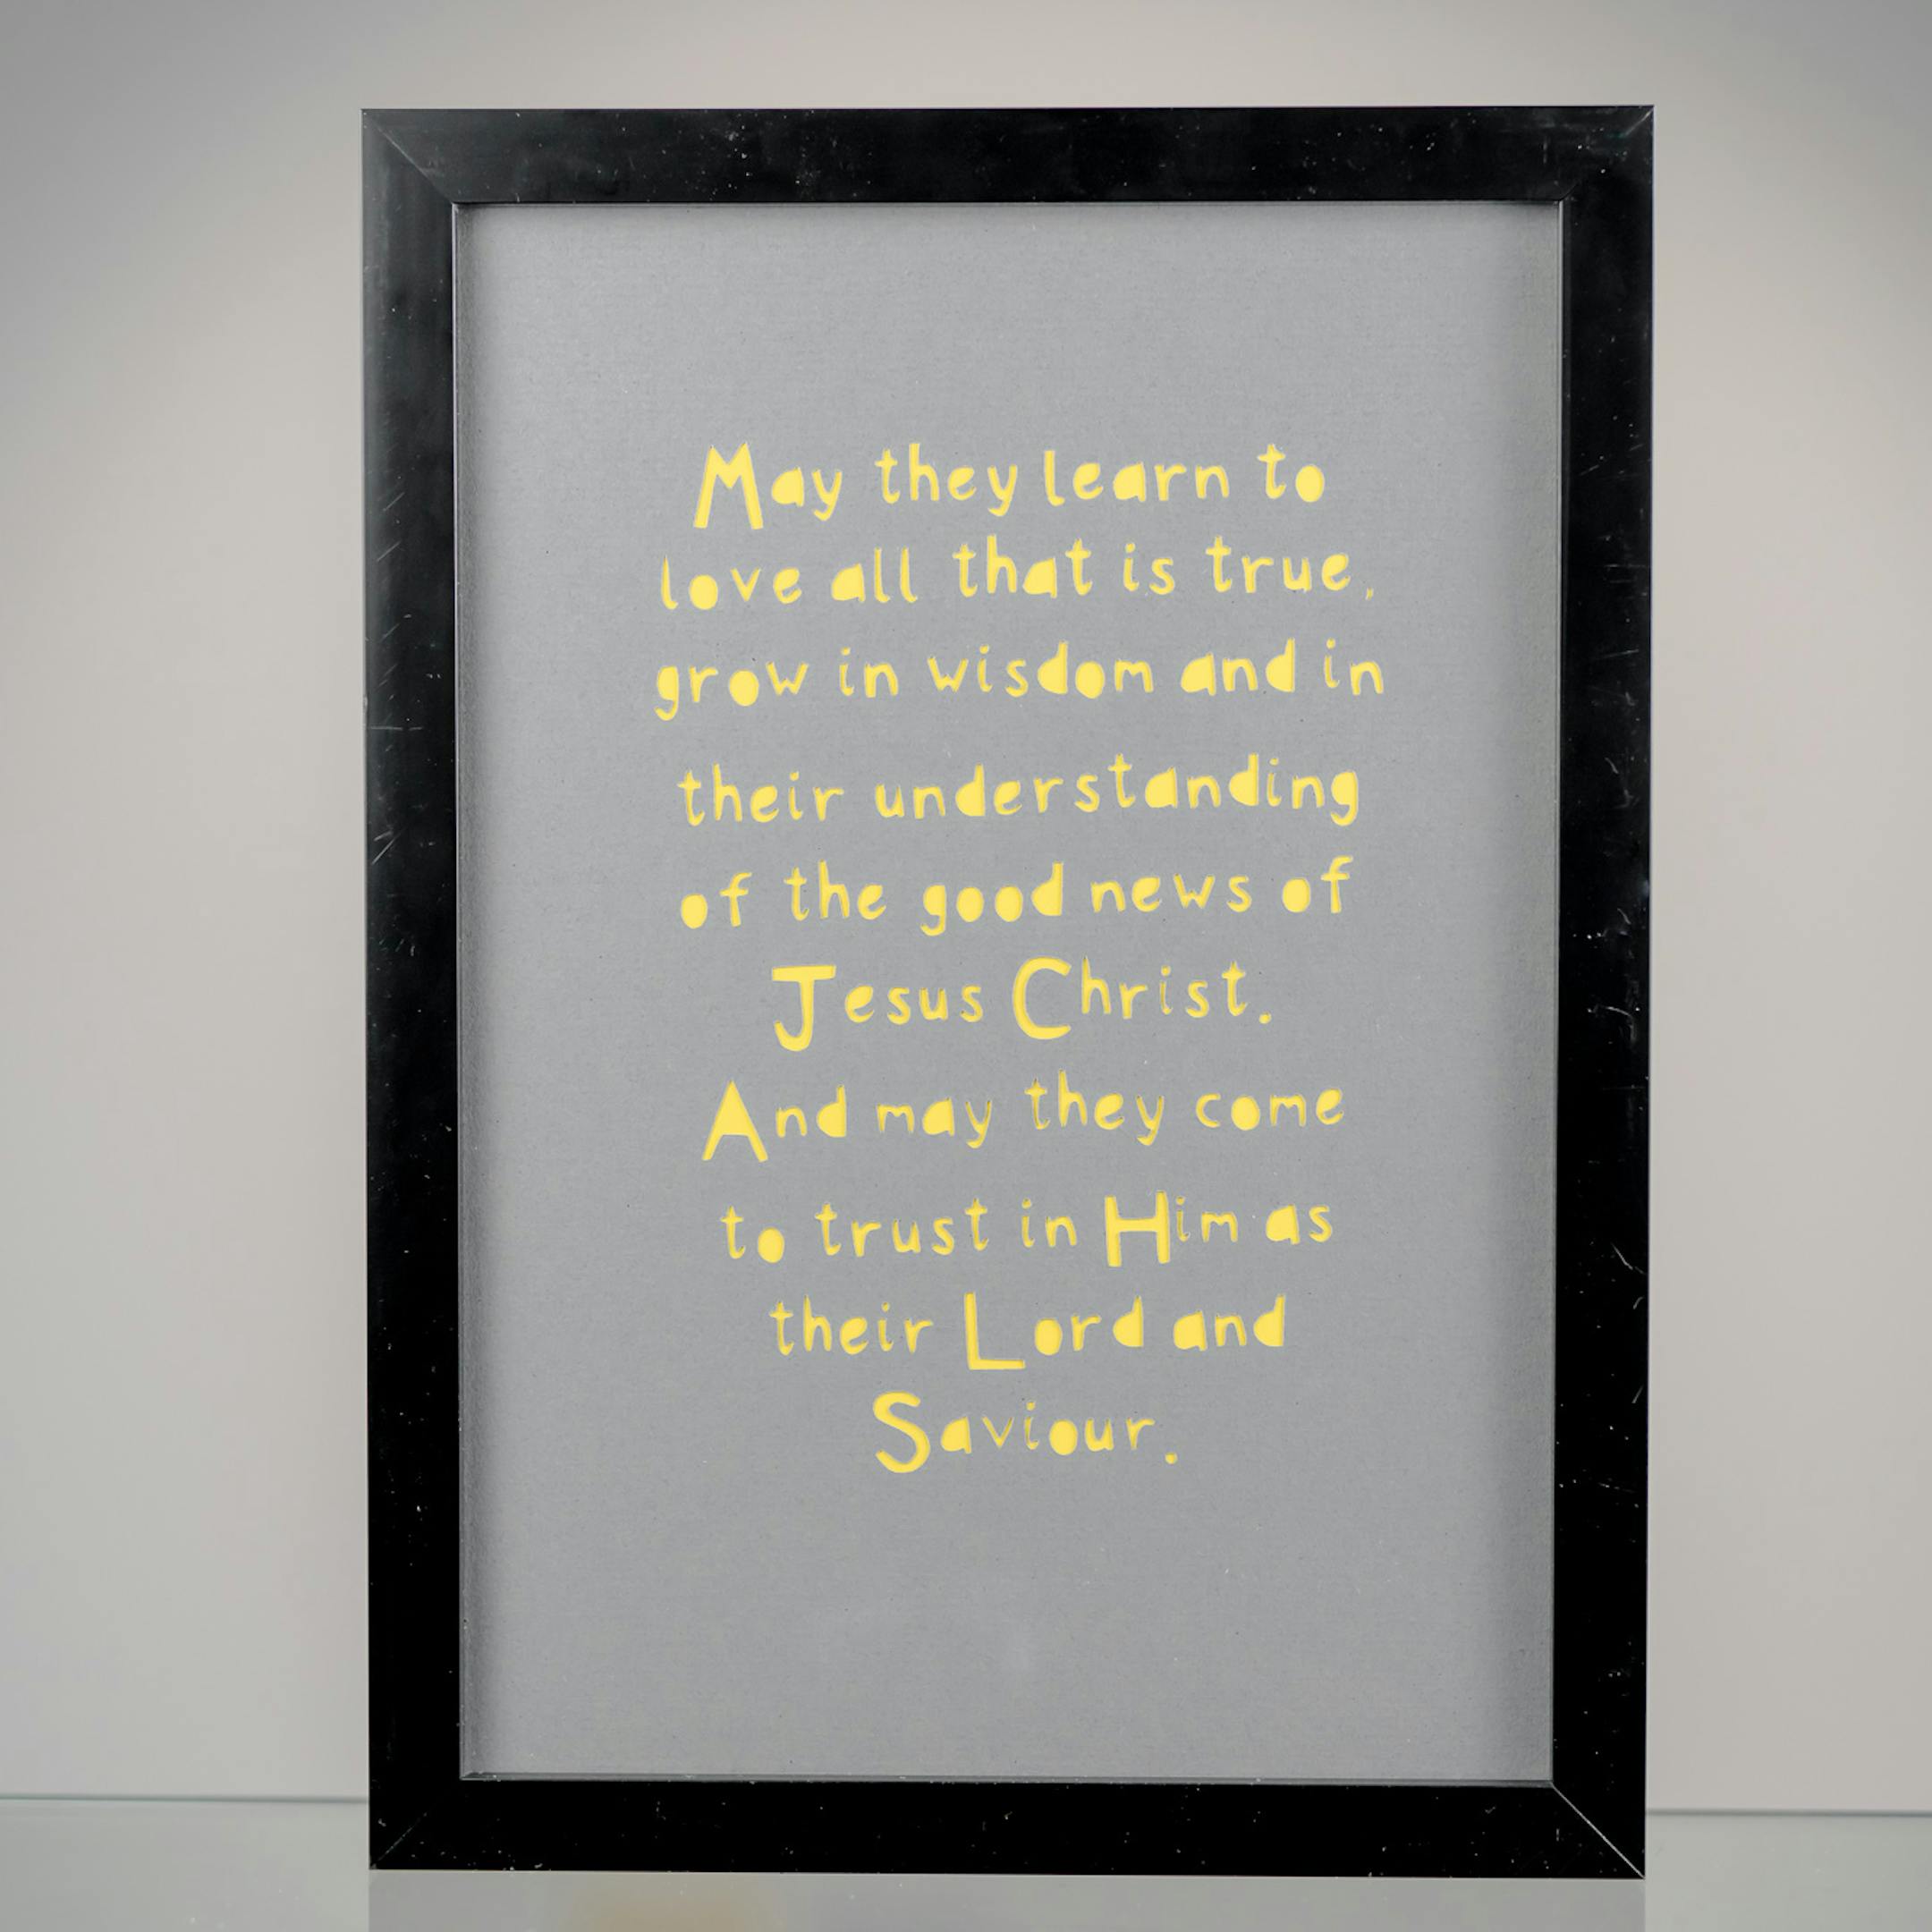 May they learn to
love all that is true,
grow in wisdom and in
their understanding
of the good news of
Jesus Christ.
And may they come
to trust in Him as
their Lord and
Saviour.